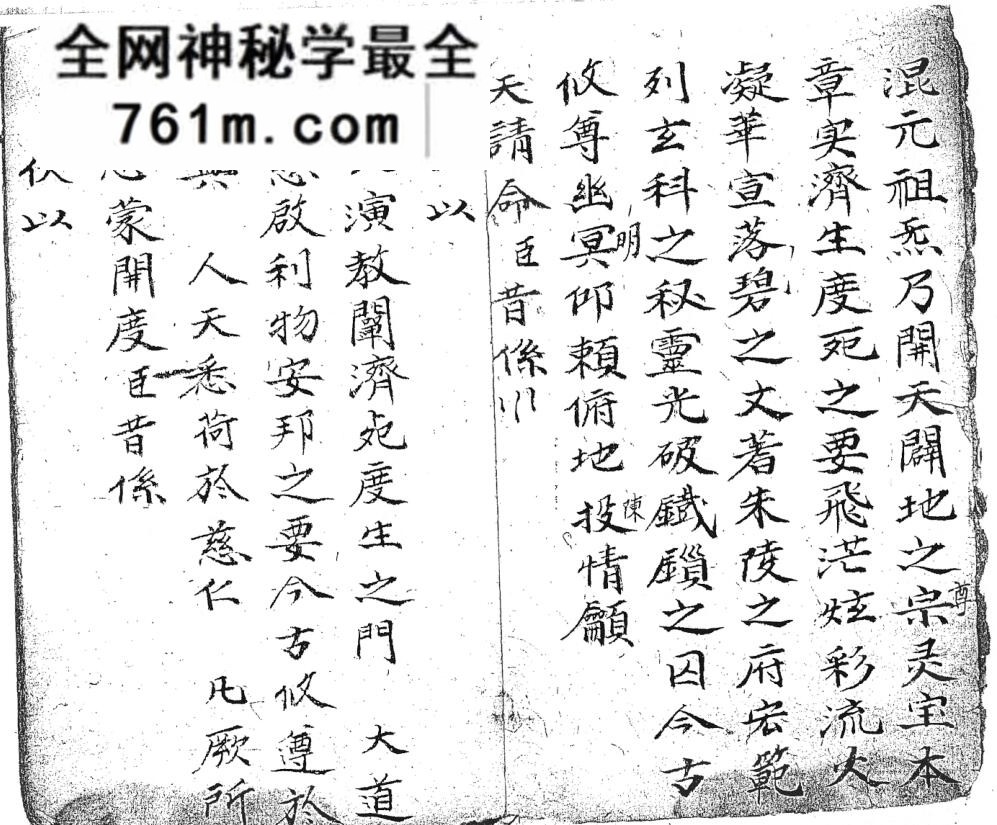 全网神秘学最全
761m.com
混元祖炁乃開天闢地之宗灵宝本
尊
章实濟生度死之要飛芒炫彩流火
凝華宣落碧之文著朱陵之府宏範
列玄科之秘靈光破鐵鎖之囚今古
攸尊幽冥仰賴俯地投情籲
明
陳
天請命臣昔係
以
演教闡濟死度生之門　大道
啟利物安邦之要今古攸遵於
人天悉荷於慈仁　凡厥所
蒙開度臣昔係
伏以